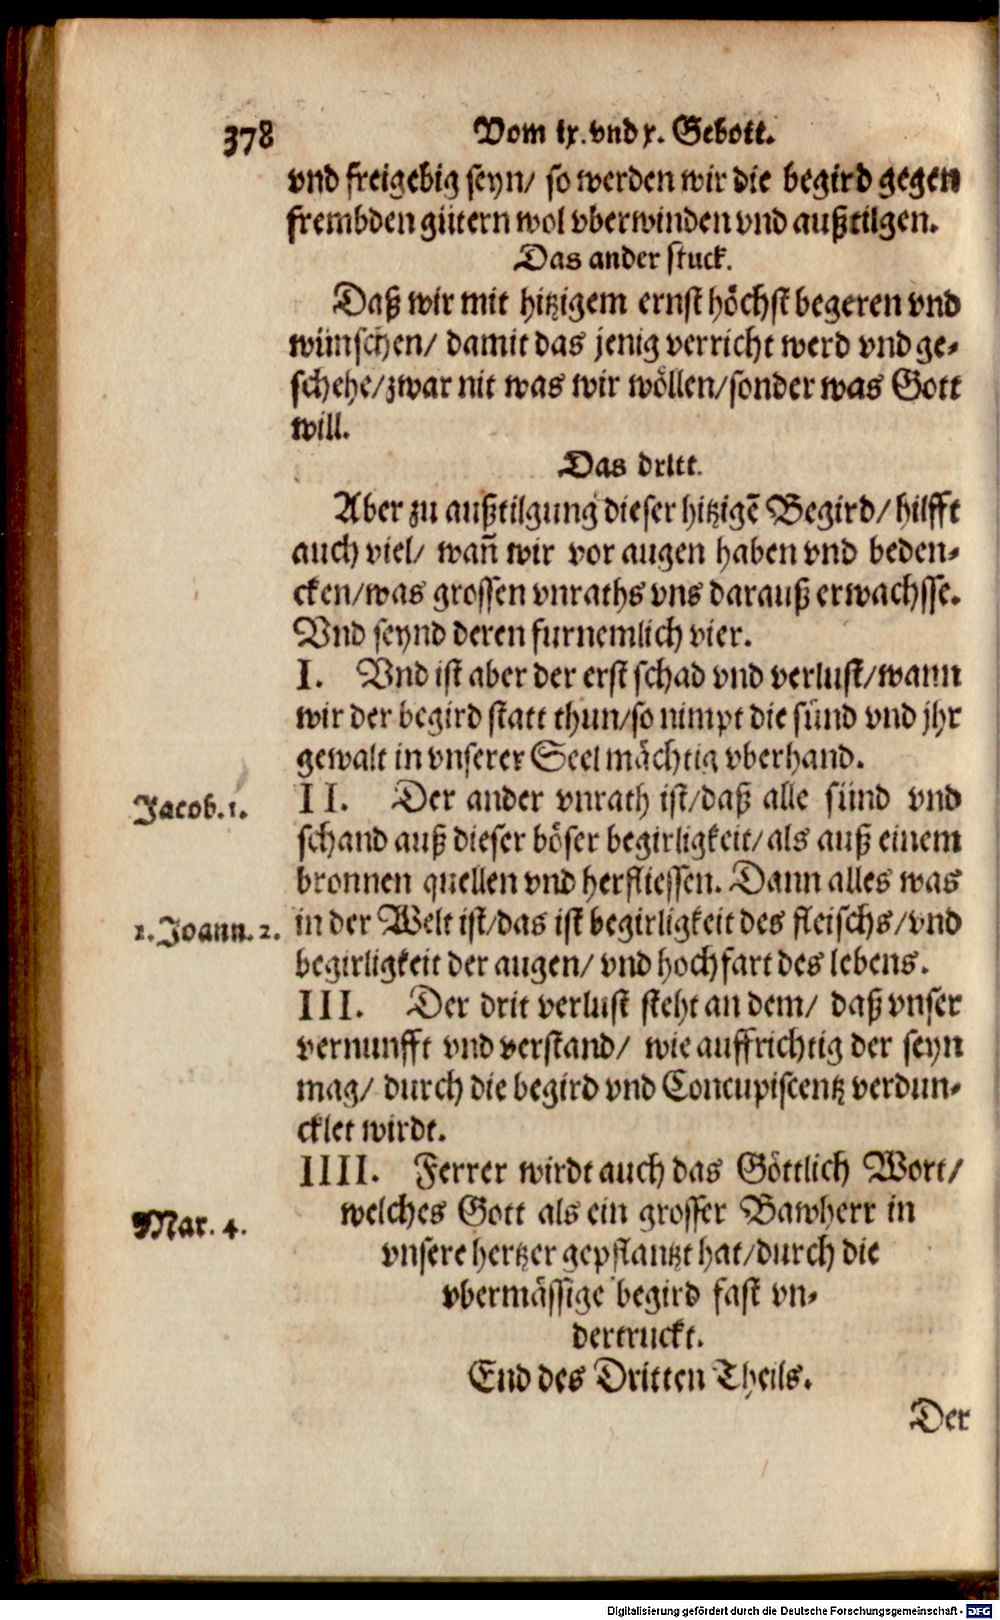 378 Vom ix. vnd x. Gebott.
vnd freigebig seyn/ so werden wir die begird gegen
frembden gütern wol vberwinden vnd außtilgen.
Das ander stuck.
Daß wir mit hitzigem ernst höchst begeren vnd
wünschen/ damit das jenig verricht werd vnd ge-
schehe/ zwar nit was wir wöllen/ sonder was Gott
will.
Das dritt.
Aber zu außtilgung dieser hitzigē Begird/ hilfft
auch viel/ wañ wir vor augen haben vnd beden-
cken/ was grossen vnraths vns darauß erwachsse.
Vnd seynd deren furnemlich vier.
I. Vnd ist aber der erst schad vnd verlust/ wann
wir der begird statt thun/ so nimpt die sünd vnd jhr
gewalt in vnserer Seel mächtig vberhand.
Jacob. 1.
II. Der ander vnrath ist/ daß alle sünd vnd
schand auß dieser böser begirligkeit/ als auß einem
bronnen quellen vnd herfliessen. Dann alles was
1. Joann. 2.
in der Welt ist/ das ist begirligkeit des fleischs/ vnd
begirligkeit der augen/ vnd hochfart des lebens.
III. Der drit verlust steht an dem/ daß vnser
vernunfft vnd verstand/ wie auffrichtig der seyn
mag/ durch die begird vnd Concupiscentz verdun-
cklet wirdt.
IIII. Ferrer wirdt auch das Göttlich Wort/
Mar. 4.
welches Gott als ein grosser Bawherr in
vnsere hertzer gepflantzt hat/ durch die
vbermässige begird fast vn-
dertruckt.
End des Dritten Theils.
Der
Digitalisierung gefördert durch die Deutsche Forschungsgemeinschaft - DFG